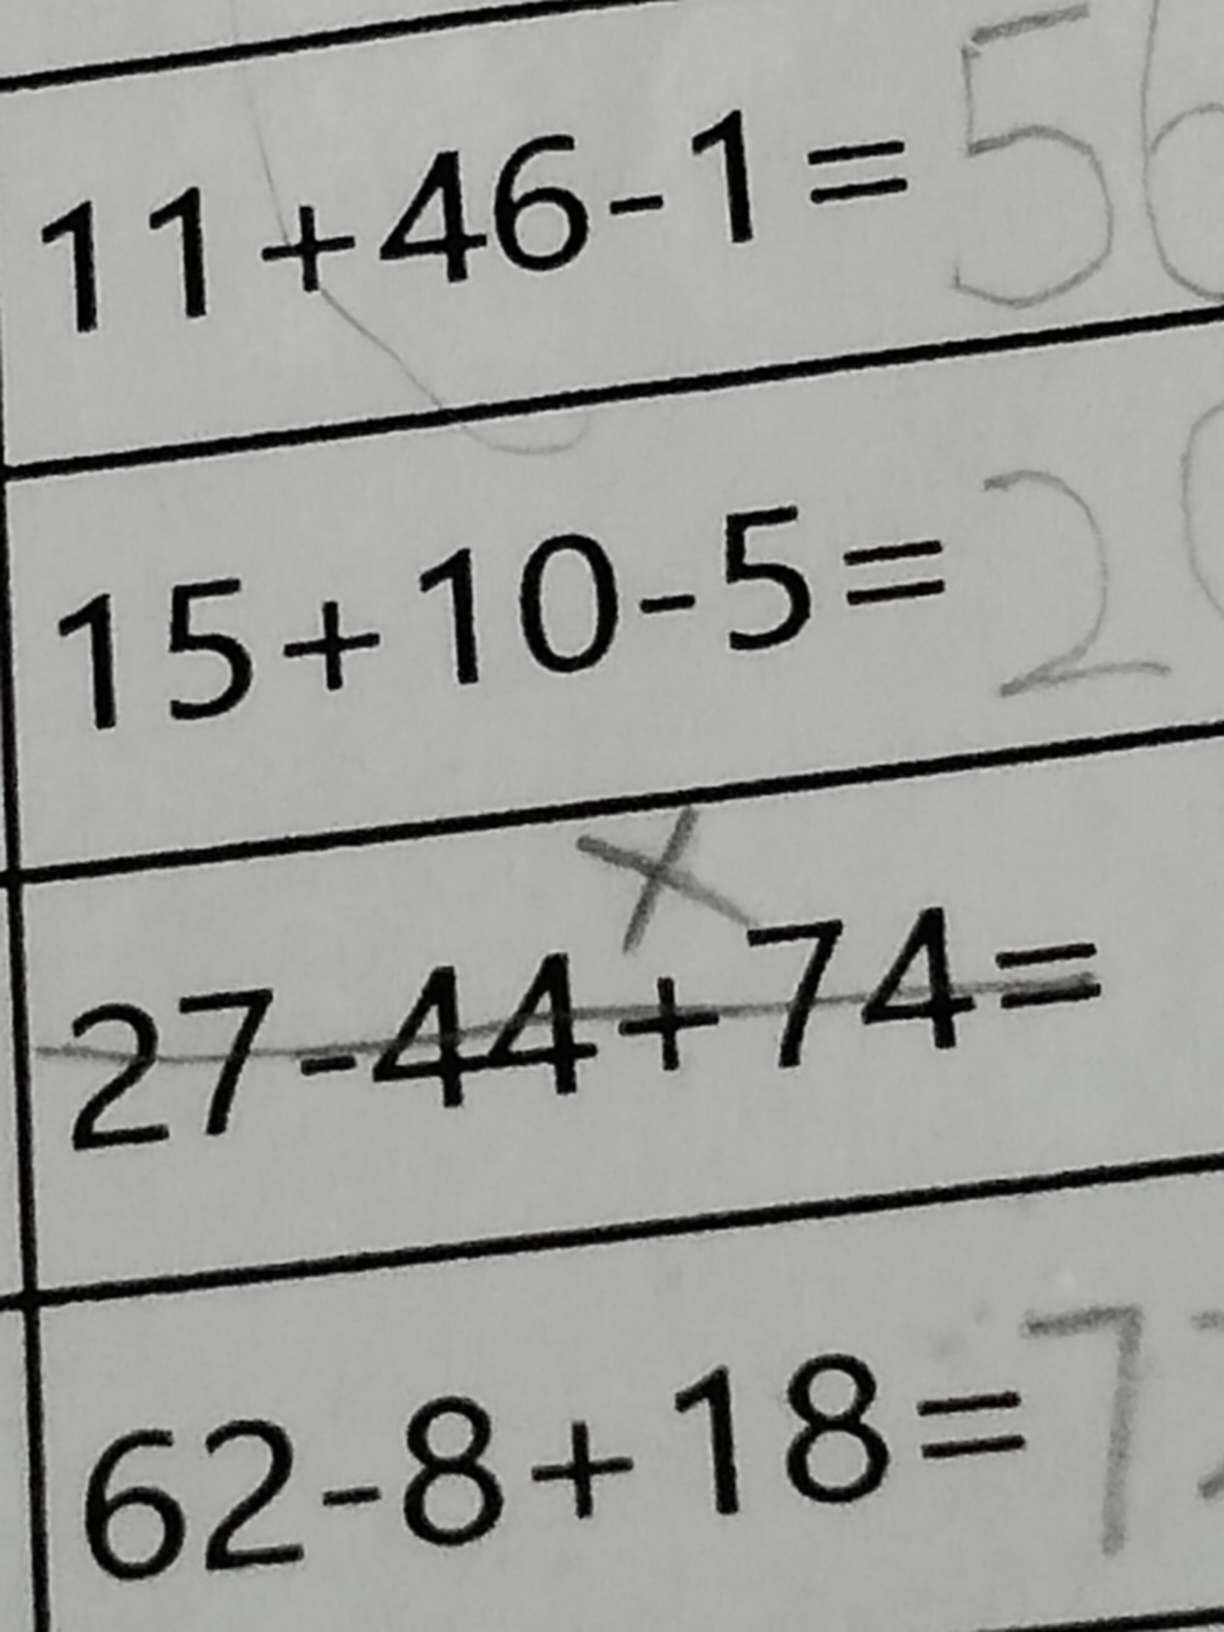 11+46-1=56
15+10-5=20
27-44+74=
62-8+18=7